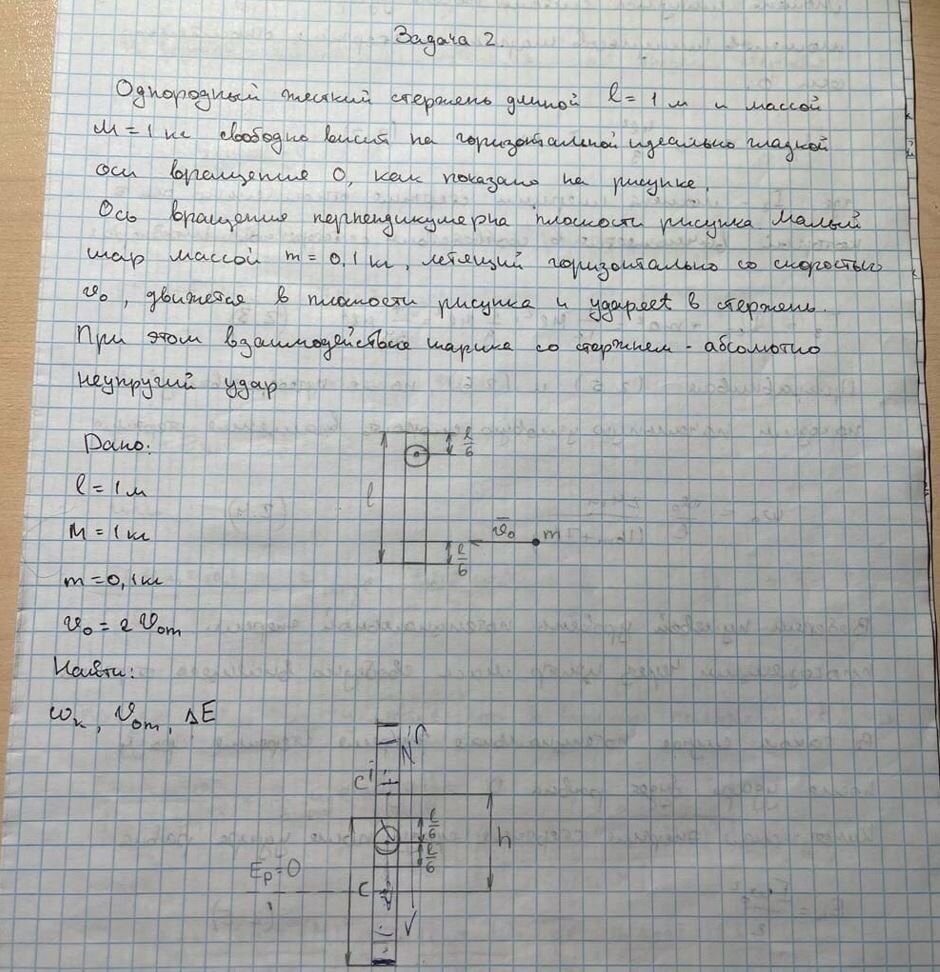 Задача 2.
Однородный жесткий стержень длиной l = 1 м и массой
M = 1 кг свободно висит на горизонтальной идеально гладкой
оси вращение O, как показано на рисунке.
Ось вращение перпендикулярна плоскости рисунка. Малый
шар массой m = 0,1 кг, летящий горизонтально со скоростью
v₀, движется в плоскости рисунка и ударяет в стержень.
При этом взаимодействие шарика со стержнем - абсолютно
неупругий удар
Дано:
l = 1 м
M = 1 кг
m = 0,1 кг
v₀ = 2 v₀m
Найти:
ωₙ, v₀m, ΔE
l/6
l
v̄₀
m
l/6
N
C'
l/6
h
l/6
Eₚ = 0
C